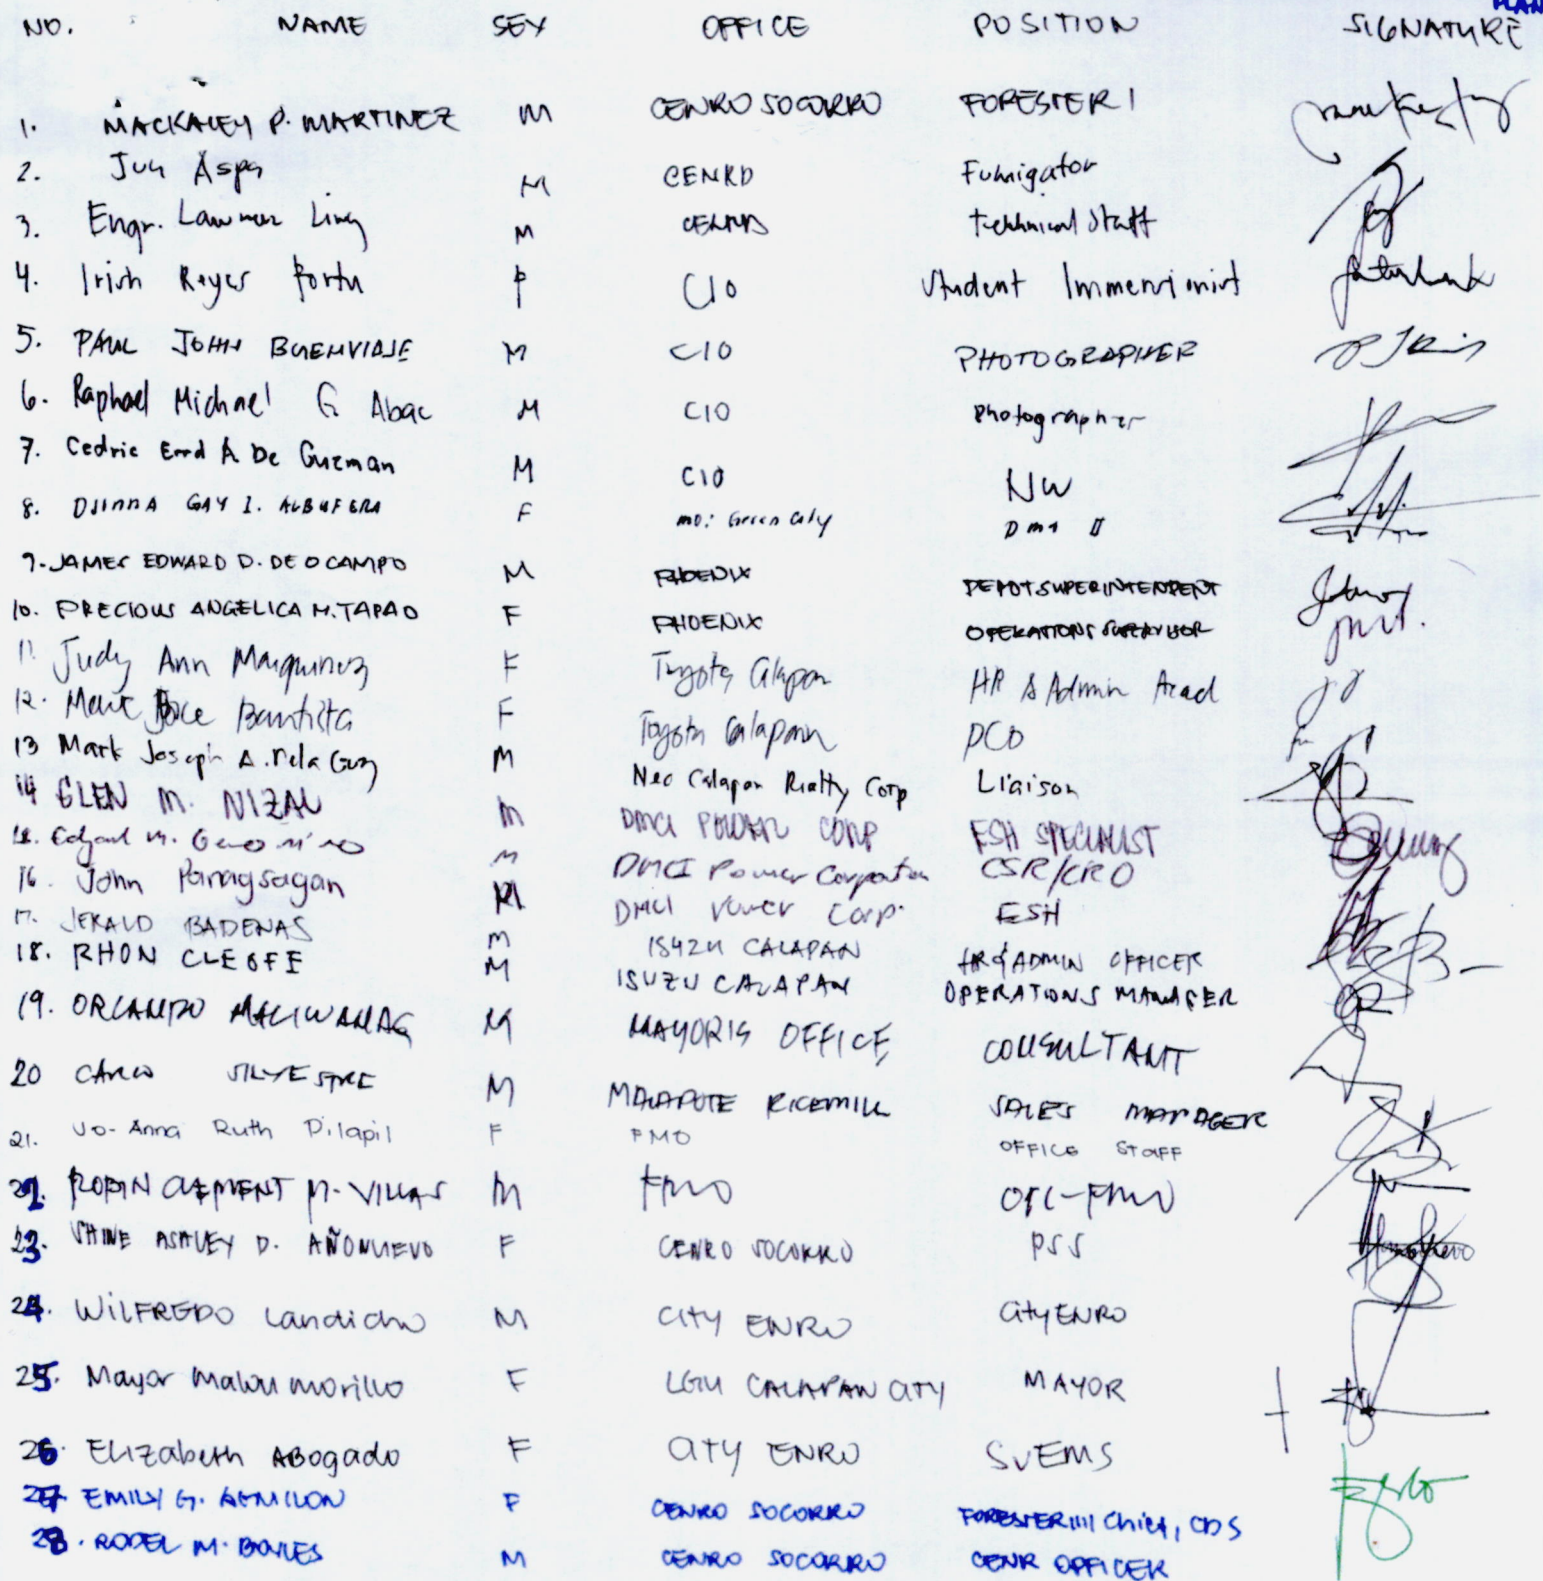 NO. NAME SEX OFFICE POSITION SIGNATURE
1. MACKALEY P. MARTINEZ M CENRO SOCORRO FORESTER I
2. Jun Aspa M CENRO Fumigator
3. Engr. Ling M technical Staff
4. Irish Reyes F CIO Student Immersionist
5. PAUL JOHN BUENVIAJE M CIO PHOTOGRAPHER
6. Raphael Michael G Abac M CIO Photographer
7. Cedric A De Guzman M CIO NW
8. GAY I. ALBUFERA F MO: Green City II
9. JAMES EDWARD D. DE OCAMPO M PHOENIX DEPOT SUPERINTENDENT
10. PRECIOUS ANGELICA M. TAPAO F PHOENIX OPERATIONS SUPERVISOR
11. Judy Ann F Toyota Calapan HR & Admin
12. Bautista F Toyota Calapan PCO
13 Mark Joseph A. M Neo Calapan Realty Corp Liaison
14 GLEN M. M DMCI POWER CORP ESH SPECIALIST
M. M DMCI Power Corporation CSR/CRO
16. John Panagsagan M DMCI Power Corp. ESH
17. JERALD BADENAS M ISUZU CALAPAN HR & ADMIN OFFICER
18. RHON CLEOFE M ISUZU CALAPAN OPERATIONS MANAGER
19. ORLANDO MALIWANAG M MAYOR'S OFFICE CONSULTANT
20 SILVESTRE M RICEMILL SALES MANAGER
21. Jo-Anna Ruth Dilapil F FMO OFFICE STAFF
22. ROBIN CLEMENT M. VILLAS M FMO OIC-FMO
23. SHINE ASHLEY D. AÑONUEVO F CENRO SOCORRO PSS
24. WILFREDO Landicho M CITY ENRO City ENRO
25. Mayor Malou Morillo F LGU CALAPAN CITY MAYOR
26. Elizabeth ABogado F CITY ENRO SVEMS
27. EMILY G. F CENRO SOCORRO FORESTER III/ Chief, CDS
28. RODEL M. M CENRO SOCORRO CENR OFFICER